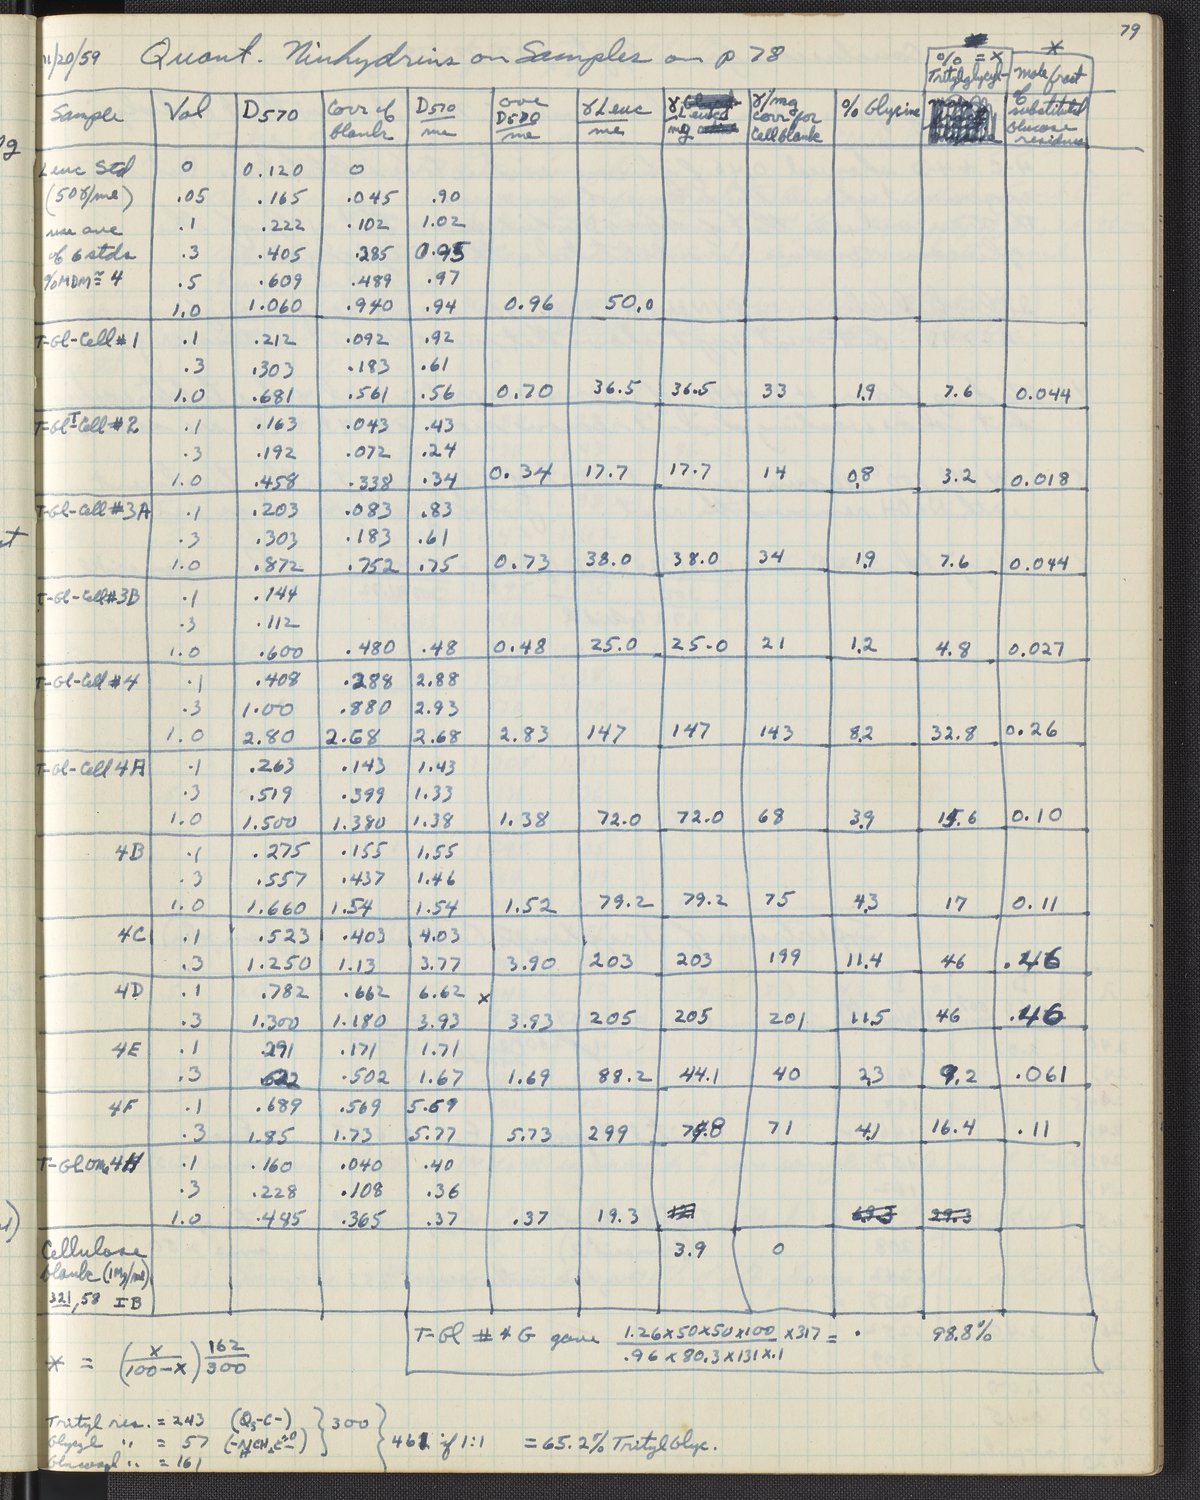 79
11/20/59 Quant. Ninhydrins on Samples on p 78
Sample Vol D570 Corr of blank D570/ml ave D570/ml γ Leuc/ml γ Leuc/mg γ/mg corr for cell blank % Glycine % = X Tritylglycyl- * mole fract of substituted glucose residues
Leuc Std 0 0.120 0
(50γ/ml) .05 .165 .045 .90
use ave .1 .222 .102 1.02
of 6 stds .3 .405 .285 0.95
%MDM ≅ 4 .5 .609 .489 .97
1.0 1.060 .940 .94 0.96 50.0
T-Gl-Cell #1 .1 .212 .092 .92
.3 .303 .183 .61
1.0 .681 .561 .56 0.70 36.5 36.5 33 1.9 7.6 0.044
T-Gl-Cell #2 .1 .163 .043 .43
.3 .192 .072 .24
1.0 .458 .338 .34 0.34 17.7 17.7 14 0.8 3.2 0.018
T-Gl-Cell #3A .1 .203 .083 .83
.3 .303 .183 .61
1.0 .872 .752 .75 0.73 38.0 38.0 34 1.9 7.6 0.044
T-Gl-Cell #3B .1 .144
.3 .112
1.0 .600 .480 .48 0.48 25.0 25.0 21 1.2 4.8 0.027
T-Gl-Cell #4 .1 .408 .288 2.88
.3 1.00 .880 2.93
1.0 2.80 2.68 2.68 2.83 147 147 143 8.2 32.8 0.26
T-Gl-Cell 4A .1 .263 .143 1.43
.3 .519 .399 1.33
1.0 1.500 1.380 1.38 1.38 72.0 72.0 68 3.9 15.6 0.10
4B .1 .275 .155 1.55
.3 .557 .437 1.46
1.0 1.660 1.54 1.54 1.52 79.2 79.2 75 4.3 17 0.11
4C .1 .523 .403 4.03
.3 1.250 1.13 3.77 3.90 203 203 199 11.4 46 .46
4D .1 .782 .662 6.62 x
.3 1.300 1.180 3.93 3.93 205 205 201 11.5 46 .46
4E .1 .291 .171 1.71
.3 .622 .502 1.67 1.69 88.2 44.1 40 2.3 9.2 .061
4F .1 .689 .569 5.69
.3 1.85 1.73 5.77 5.73 299 74.8 71 4.1 16.4 .11
T-Gl OMe 4H .1 .160 .040 .40
.3 .228 .108 .36
1.0 .485 .365 .37 .37 19.3 29.3
Cellulose 3.9 0
blank (1mg/ml)
321, 58 IB
T-Gl #4G gave 1.26×50×50×100/.96×80.3×131×.1 ×317 = . 98.8%
* = (X/100-X) 162/300
Trityl res. = 243 (Q3-C-) } 300
Glycyl " = 57 (-NHCH2C=O) } 461 if 1:1 = 65.2% TritylGlyc.
Glucosyl " = 161